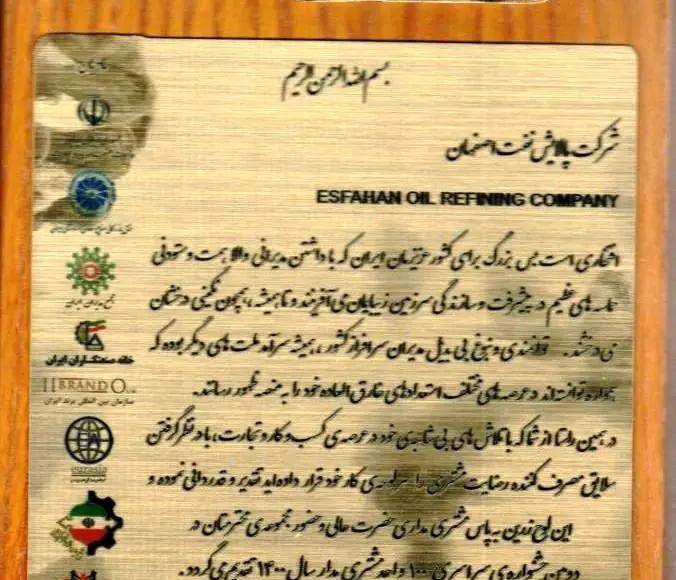 بسم الله الرحمن الرحیم
شرکت پالایش نفت اصفهان
ESFAHAN OIL REFINING COMPANY
افتخاری است بس بزرگ برای کشور عزیزمان ایران که با داشتن مدیرانی والا همت و ستودنی
حماسه های عظیم در پیشرفت و سازندگی سرزمین زیبایمان می آفرینند و تا همیشه، همچون نگینی درخشان
می درخشند. توانمندی و نبوغ بی بدیل مدیران سرافراز کشور، همیشه سرآمد ملت های دیگر بوده که
همواره توانسته اند در عرصه های مختلف استعدادهای خارق العاده خود را به منصه ظهور رسانند.
در همین راستا از شما که با تلاش های بی شائبه ی خود در عرصه ی کسب و کار و تجارت، با در نظر گرفتن
سلایق مصرف کننده رضایت مشتری را سرلوحه ی کار خود قرار داده اید تقدیر و قدردانی نموده و
این لوح زرین به پاس مشتری مداری حضرت عالی و حضور مجموعه ی محترمتان در
دومین جشنواره ی سراسری ۱۰۰ واحد مشتری مدار سال ۱۴۰۰ تقدیم می گردد.
مجمع مدیران ایران
خانه صنعتگران ایران
IIBRANDO..
سازمان بین المللی برند ایران
eurasia